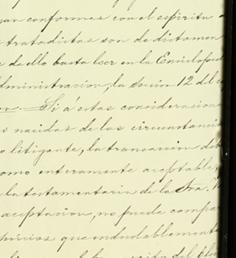 an conformes con el espíritu
tratadistas son de dictamen
de ello basta leer en la Encicloped
dministracion, la seccion 12 del
Si á estas consideracion
s nacidas de las circunstanci
o litigante, la transaccion de
omo enteramente aceptable,
la testamentaria de la Sra.
aceptacion, no puede compa
que indudablemente